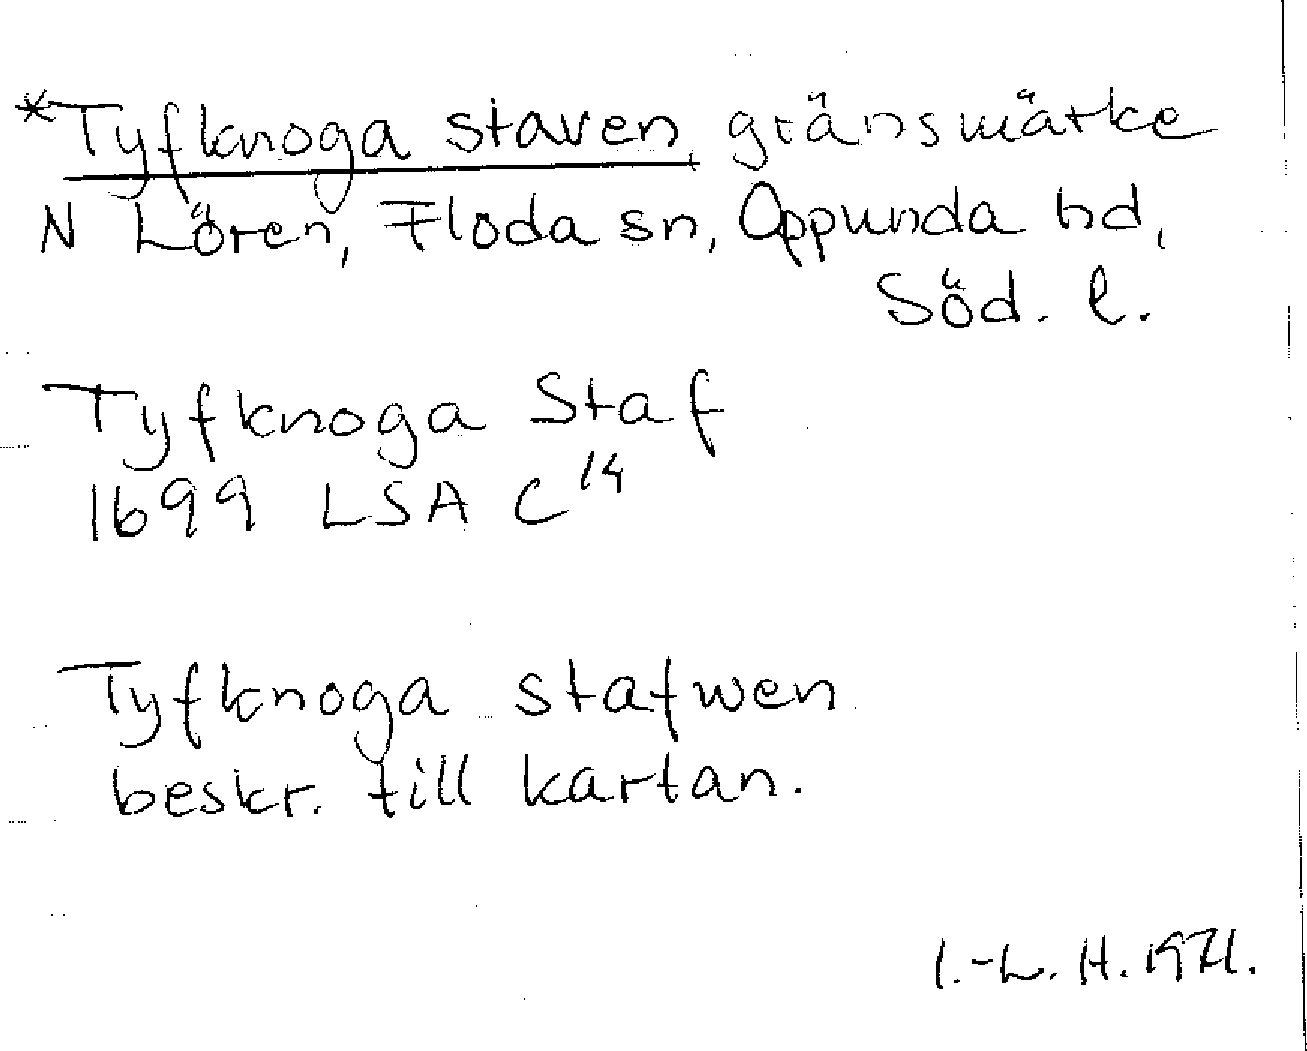 *Tyfknoga staven gränsmärke
N Lören, Floda sn, Oppunda hd,
Söd. l.
Tyfknoga Staf
1699 LSA C 14
Tyfknoga stafwen
beskr. till kartan.
I.-L. H. 1971.